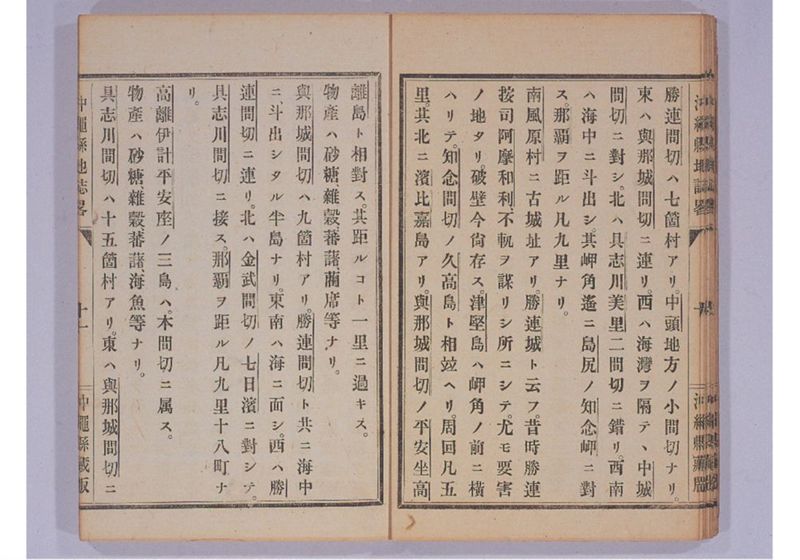 勝連間切ハ七箇村アリ。中頭地方ノ小間切ナリ。
東ハ與那城間切ニ連リ。西ハ海灣ヲ隔テ丶中城
間切ニ對シ。北ハ具志川美里二間切ニ錯リ。西南
ハ海中ニ斗出シ。其岬角遙ニ島尻ノ知念岬ニ對
ス。那覇ヲ距ル凡九里ナリ。
南風原村ニ古城址アリ。勝連城ト云フ。昔時勝連
按司阿摩和利。不軌ヲ謀リシ所ニシテ。尤モ要害
ノ地タリ。破壁今尙存ス津堅島ハ岬角ノ前ニ橫
ハリテ。知念間切ノ久高島ト相竝ヘリ。周回凡五
里。其北ニ濱比嘉島アリ。與那城間切ノ平安坐高
離島ト相對ス。其距ルコト一里ニ過キス。
物產ハ砂糖、雜穀、蕃藷、藺席等ナリ。
與那城間切ハ九箇村アリ。勝連間切ト共ニ海中
ニ斗出シタル半島ナリ。東南ハ海ニ面シ。西ハ勝
連間切ニ連リ。北ハ金武間切ノ七日濱ニ對シテ。
具志川間切ニ接ス。那覇ヲ距ル凡九里十八町ナ
リ。
高離伊計平安座ノ三島ハ。本間切ニ属ス。
物產ハ砂糖、雜穀、蕃藷、海魚等ナリ。
具志川間切ハ十五箇村アリ。東ハ與那城間切ニ
沖繩縣地誌畧
十一
沖繩縣藏版